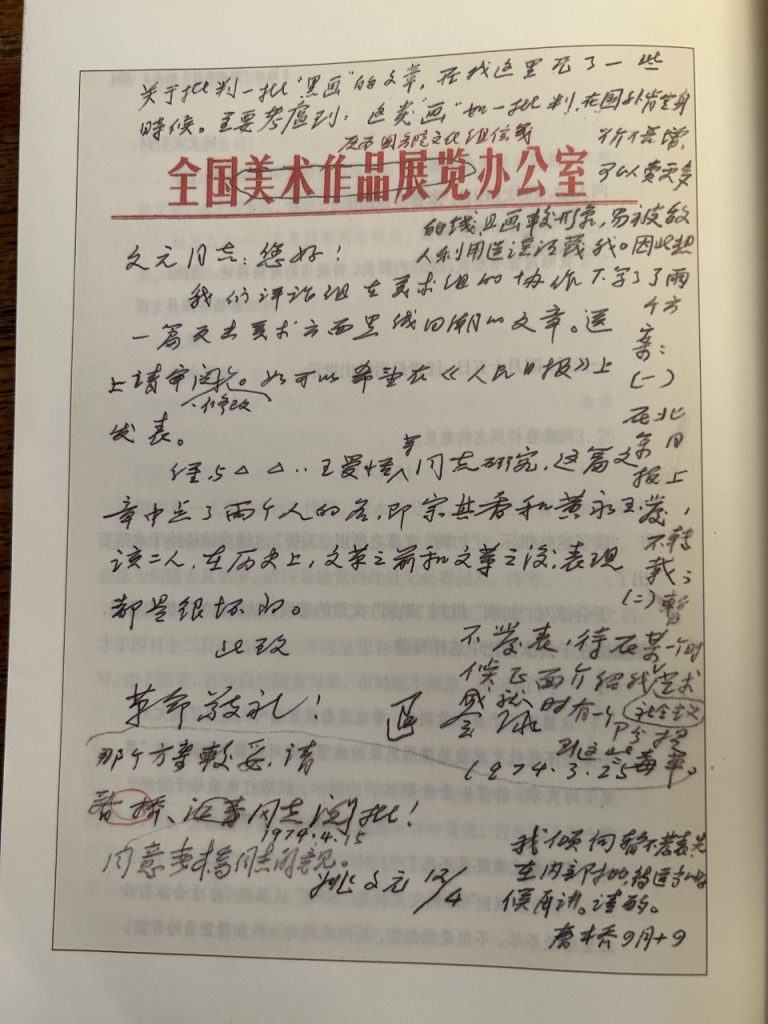 关于批判一批“黑画”的文章，在我这里压了一些
时候。主要考虑到：这类“画”如一批判，在国外肯定身
价倍增，
可以卖更多
的钱，且画较形象，易被敌
人利用造谣污蔑我。因此想
了两
个方
案：
(一)
在北
京日
报上
发，
不转
载；
(二)暂
不发表，待在某一个时
候正面介绍我艺术
成就时有一个
社会主义
全国美术作品展览办公室
文元同志：您好！
我们评论组在美术组的协作下写了
一篇反击美术方面黑线回潮的文章。送
上请审阅
修改
。如可以希望在《人民日报》上
发表。
经与△△··王曼恬等同志研究，这篇文
章中点了两个人的名，即宗其香和黄永玉，
该二人，在历史上，文革之前和文革之后，表现
都是很坏的。
此致
革命敬礼！
会泳
1974.3.25
那个方案较妥，请
春桥、江青同志阅批！
姚文元 12/4
同意春桥同志的意见。
1974.4.15
我倾向暂不发表，先
在内部批，待适当时
候再讲。请酌。
春桥